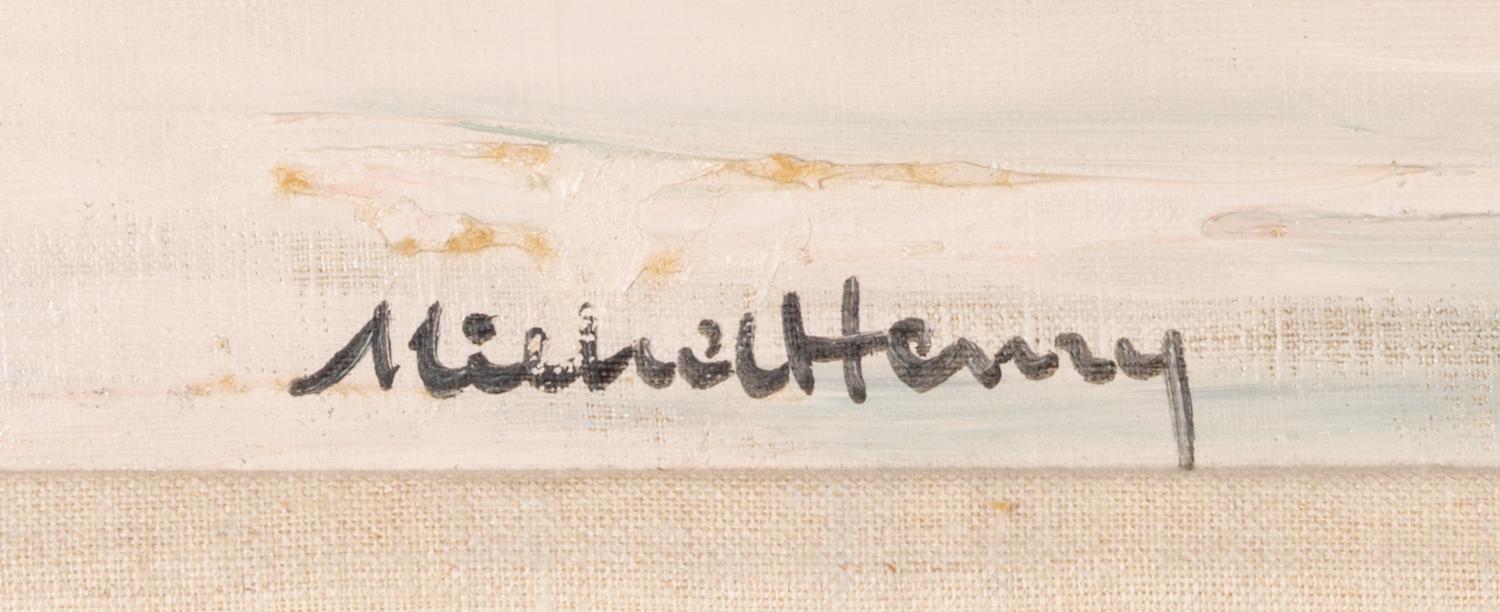 Michel Henry